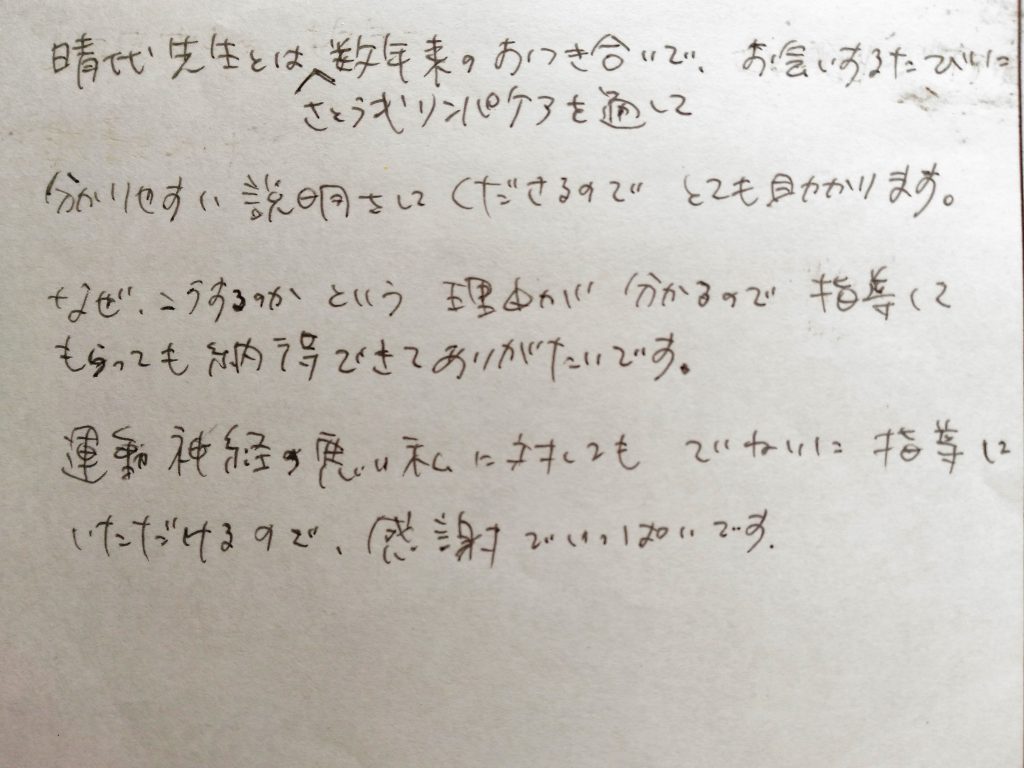 晴代先生とは数年来のおつき合いで、お会いするたびに
さとう式リンパケアを通して
分かりやすい説明をしてくださるので とても助かります。
なぜ、こうするのか という 理由が 分かるので 指導して
もらっても納得できてありがたいです。
運動神経の悪い私に対しても ていねいに 指導し
いただけるので、感謝でいっぱいです.